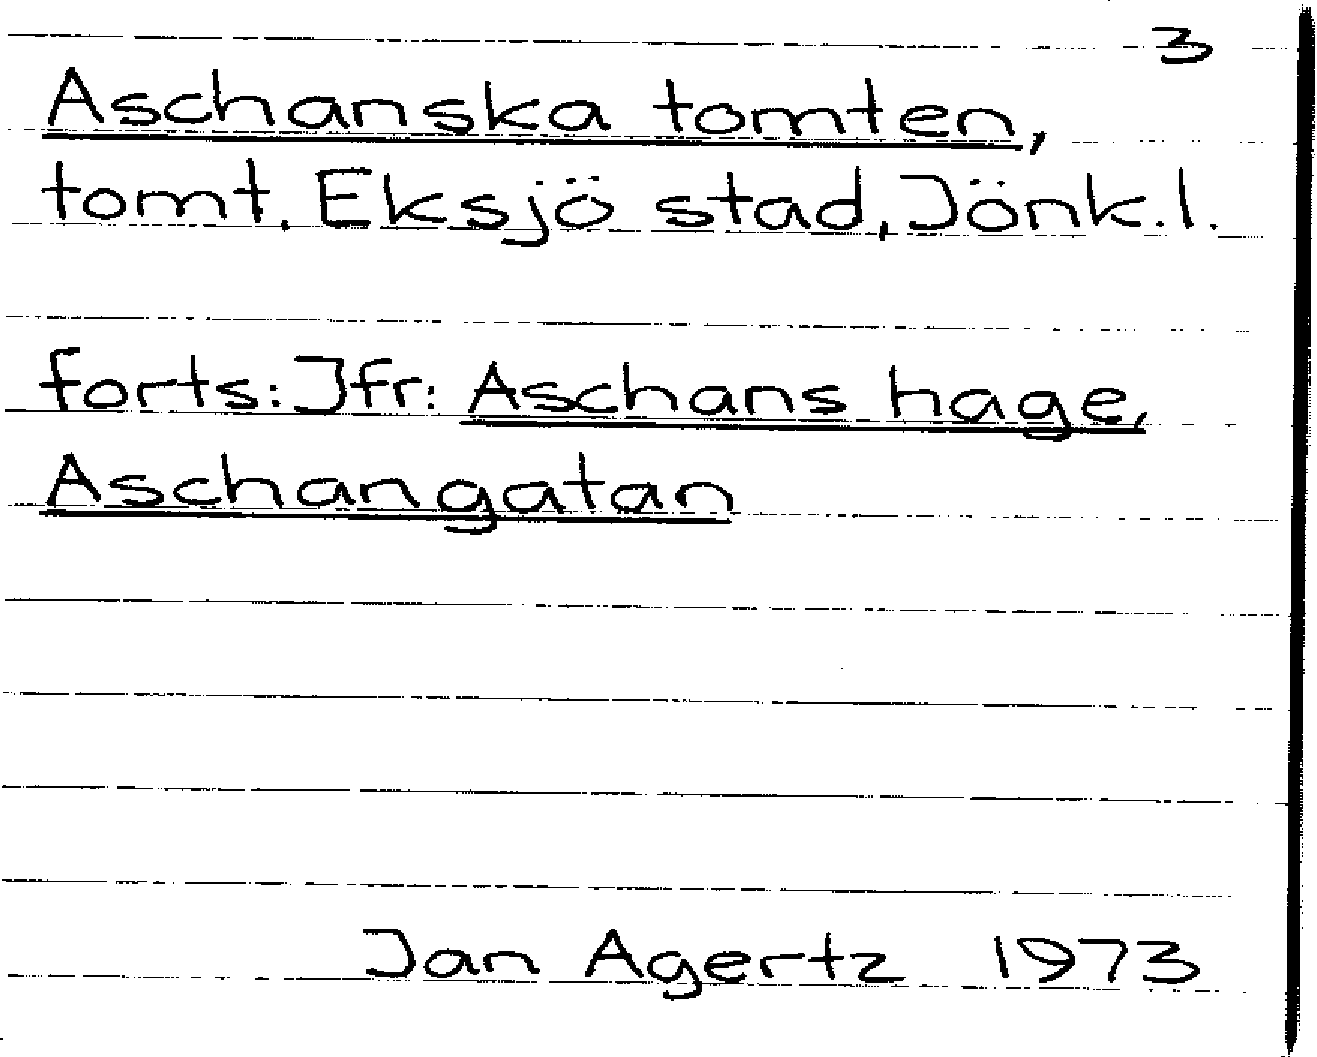 3
Aschanska tomten,
tomt. Eksjö stad, Jönk.l.
forts: Jfr: Aschans hage,
Aschangatan
Jan Agertz 1973